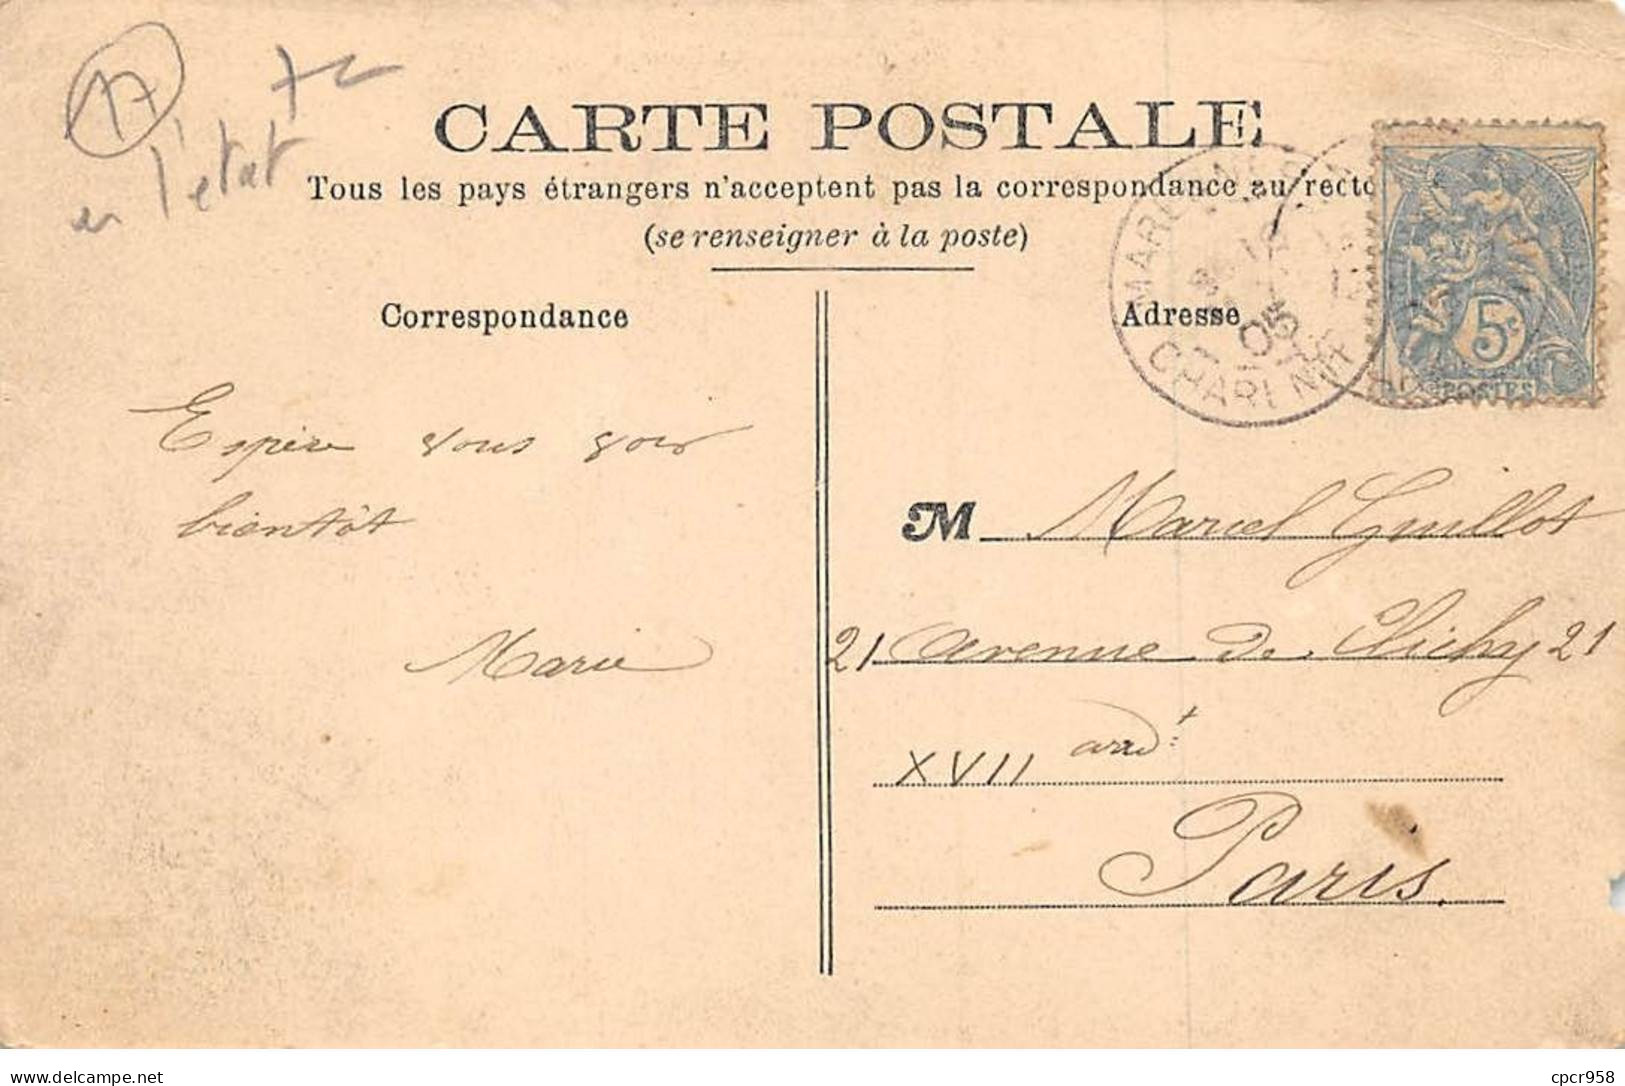 17
en l'état
CARTE POSTALE
Tous les pays étrangers n'acceptent pas la correspondance au recto
(se renseigner à la poste)
Correspondance
Adresse
05
CHARI INFRE
5c
POSTES
Espère vous voir
bientôt
Marie
M Marcel Guillot
21 Avenue de Clichy 21
XVII arrdt
Paris.
delcampe.net
cpcr958